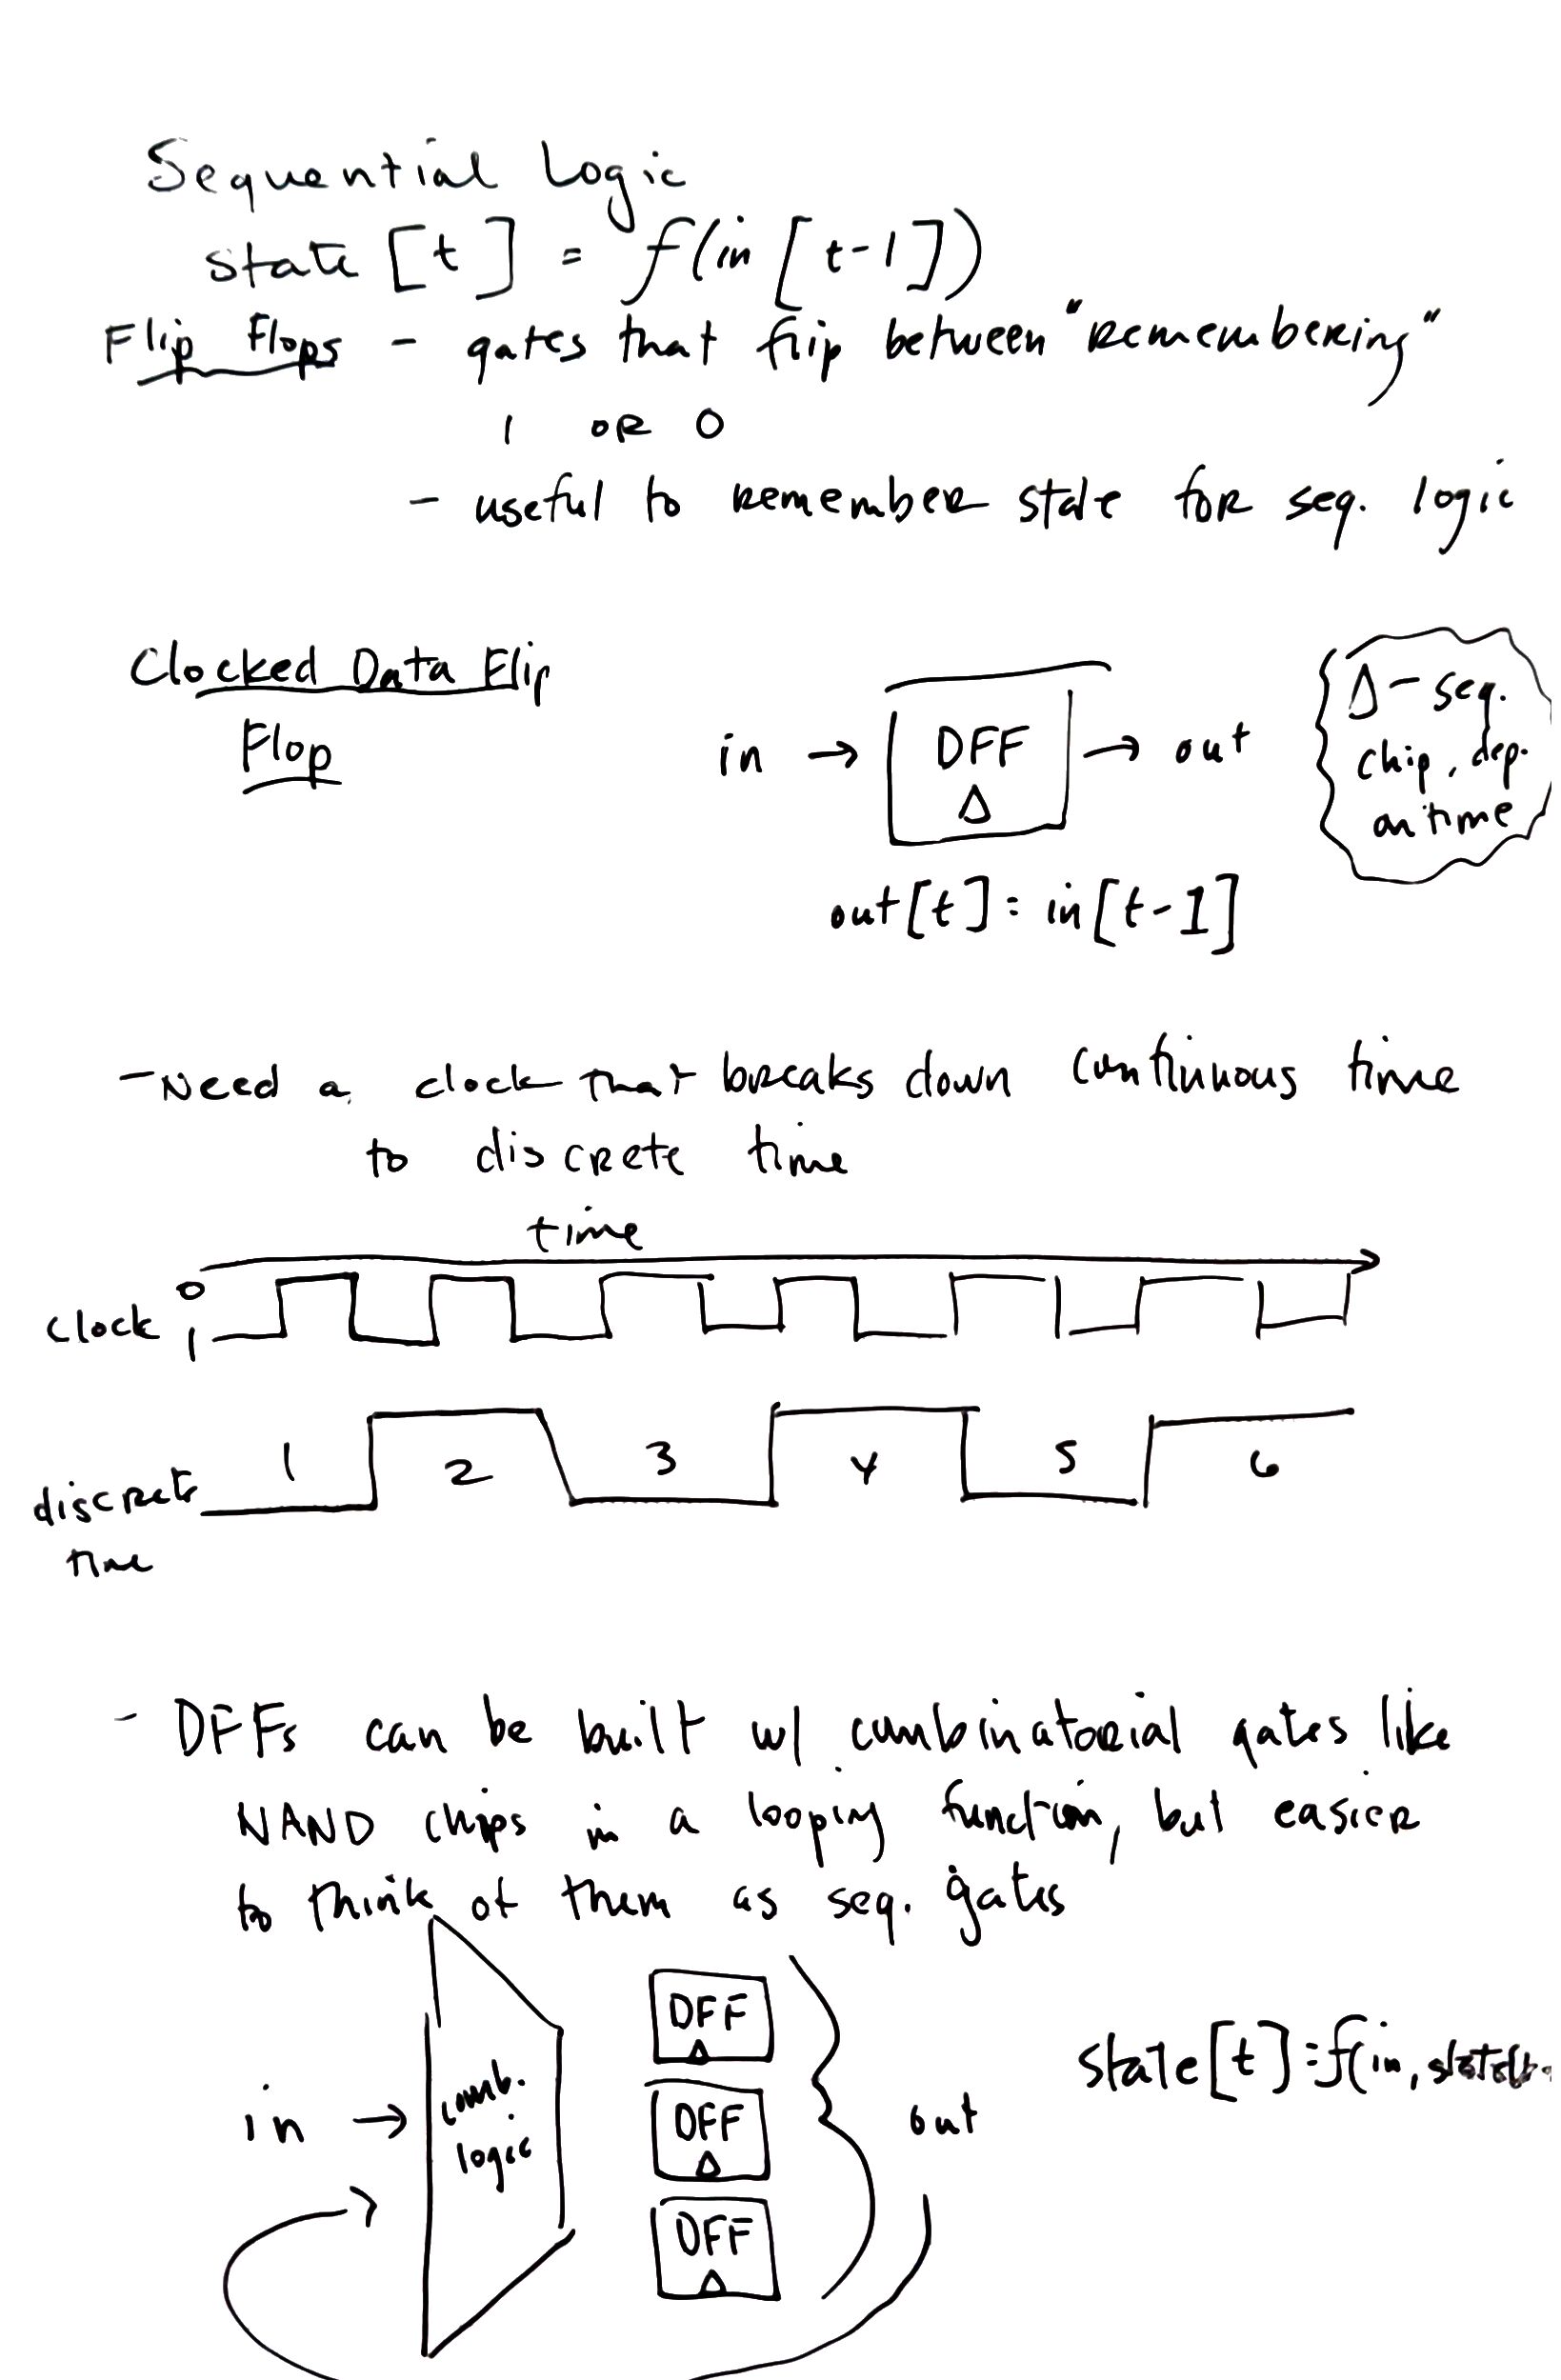 Sequential Logic
state [t] = f(in [t-1])
Flip Flops - gates that flip between "Remembering"
1 OR 0
- useful to remember state for seq. logic
Clocked Data Flip
Flop
in → DFF → out
Δ - seq.
chip, dep.
on time
out[t] = in[t-1]
- Need a clock that breaks down continuous time
to discrete time
time
0
clock 1
1 2 3 4 5 6
discrete
time
- DFFs can be built w/ combinatorial gates like
NAND chips in a looping function, but easier
to think of them as seq. gates
DFF
state[t] = f(in,
in → comb.
logic
DFF
out
DFF